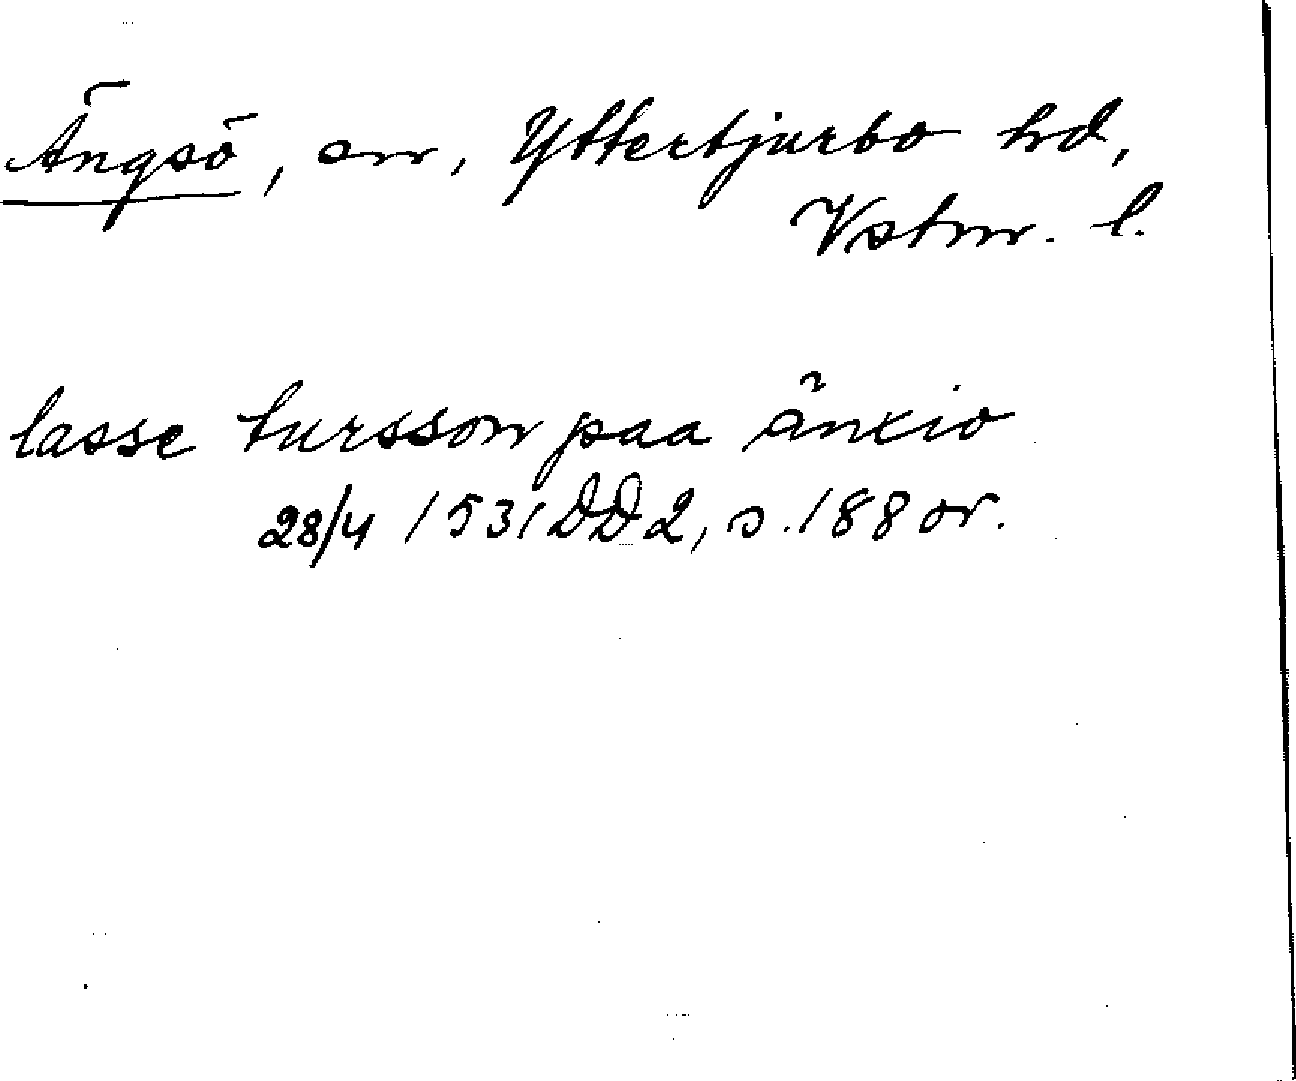 Ängsö, sn, Yttertjurbo hd,
Vstm. l.
lasse tursson paa änxiö
28/4 1531 DD2, s. 188 or.